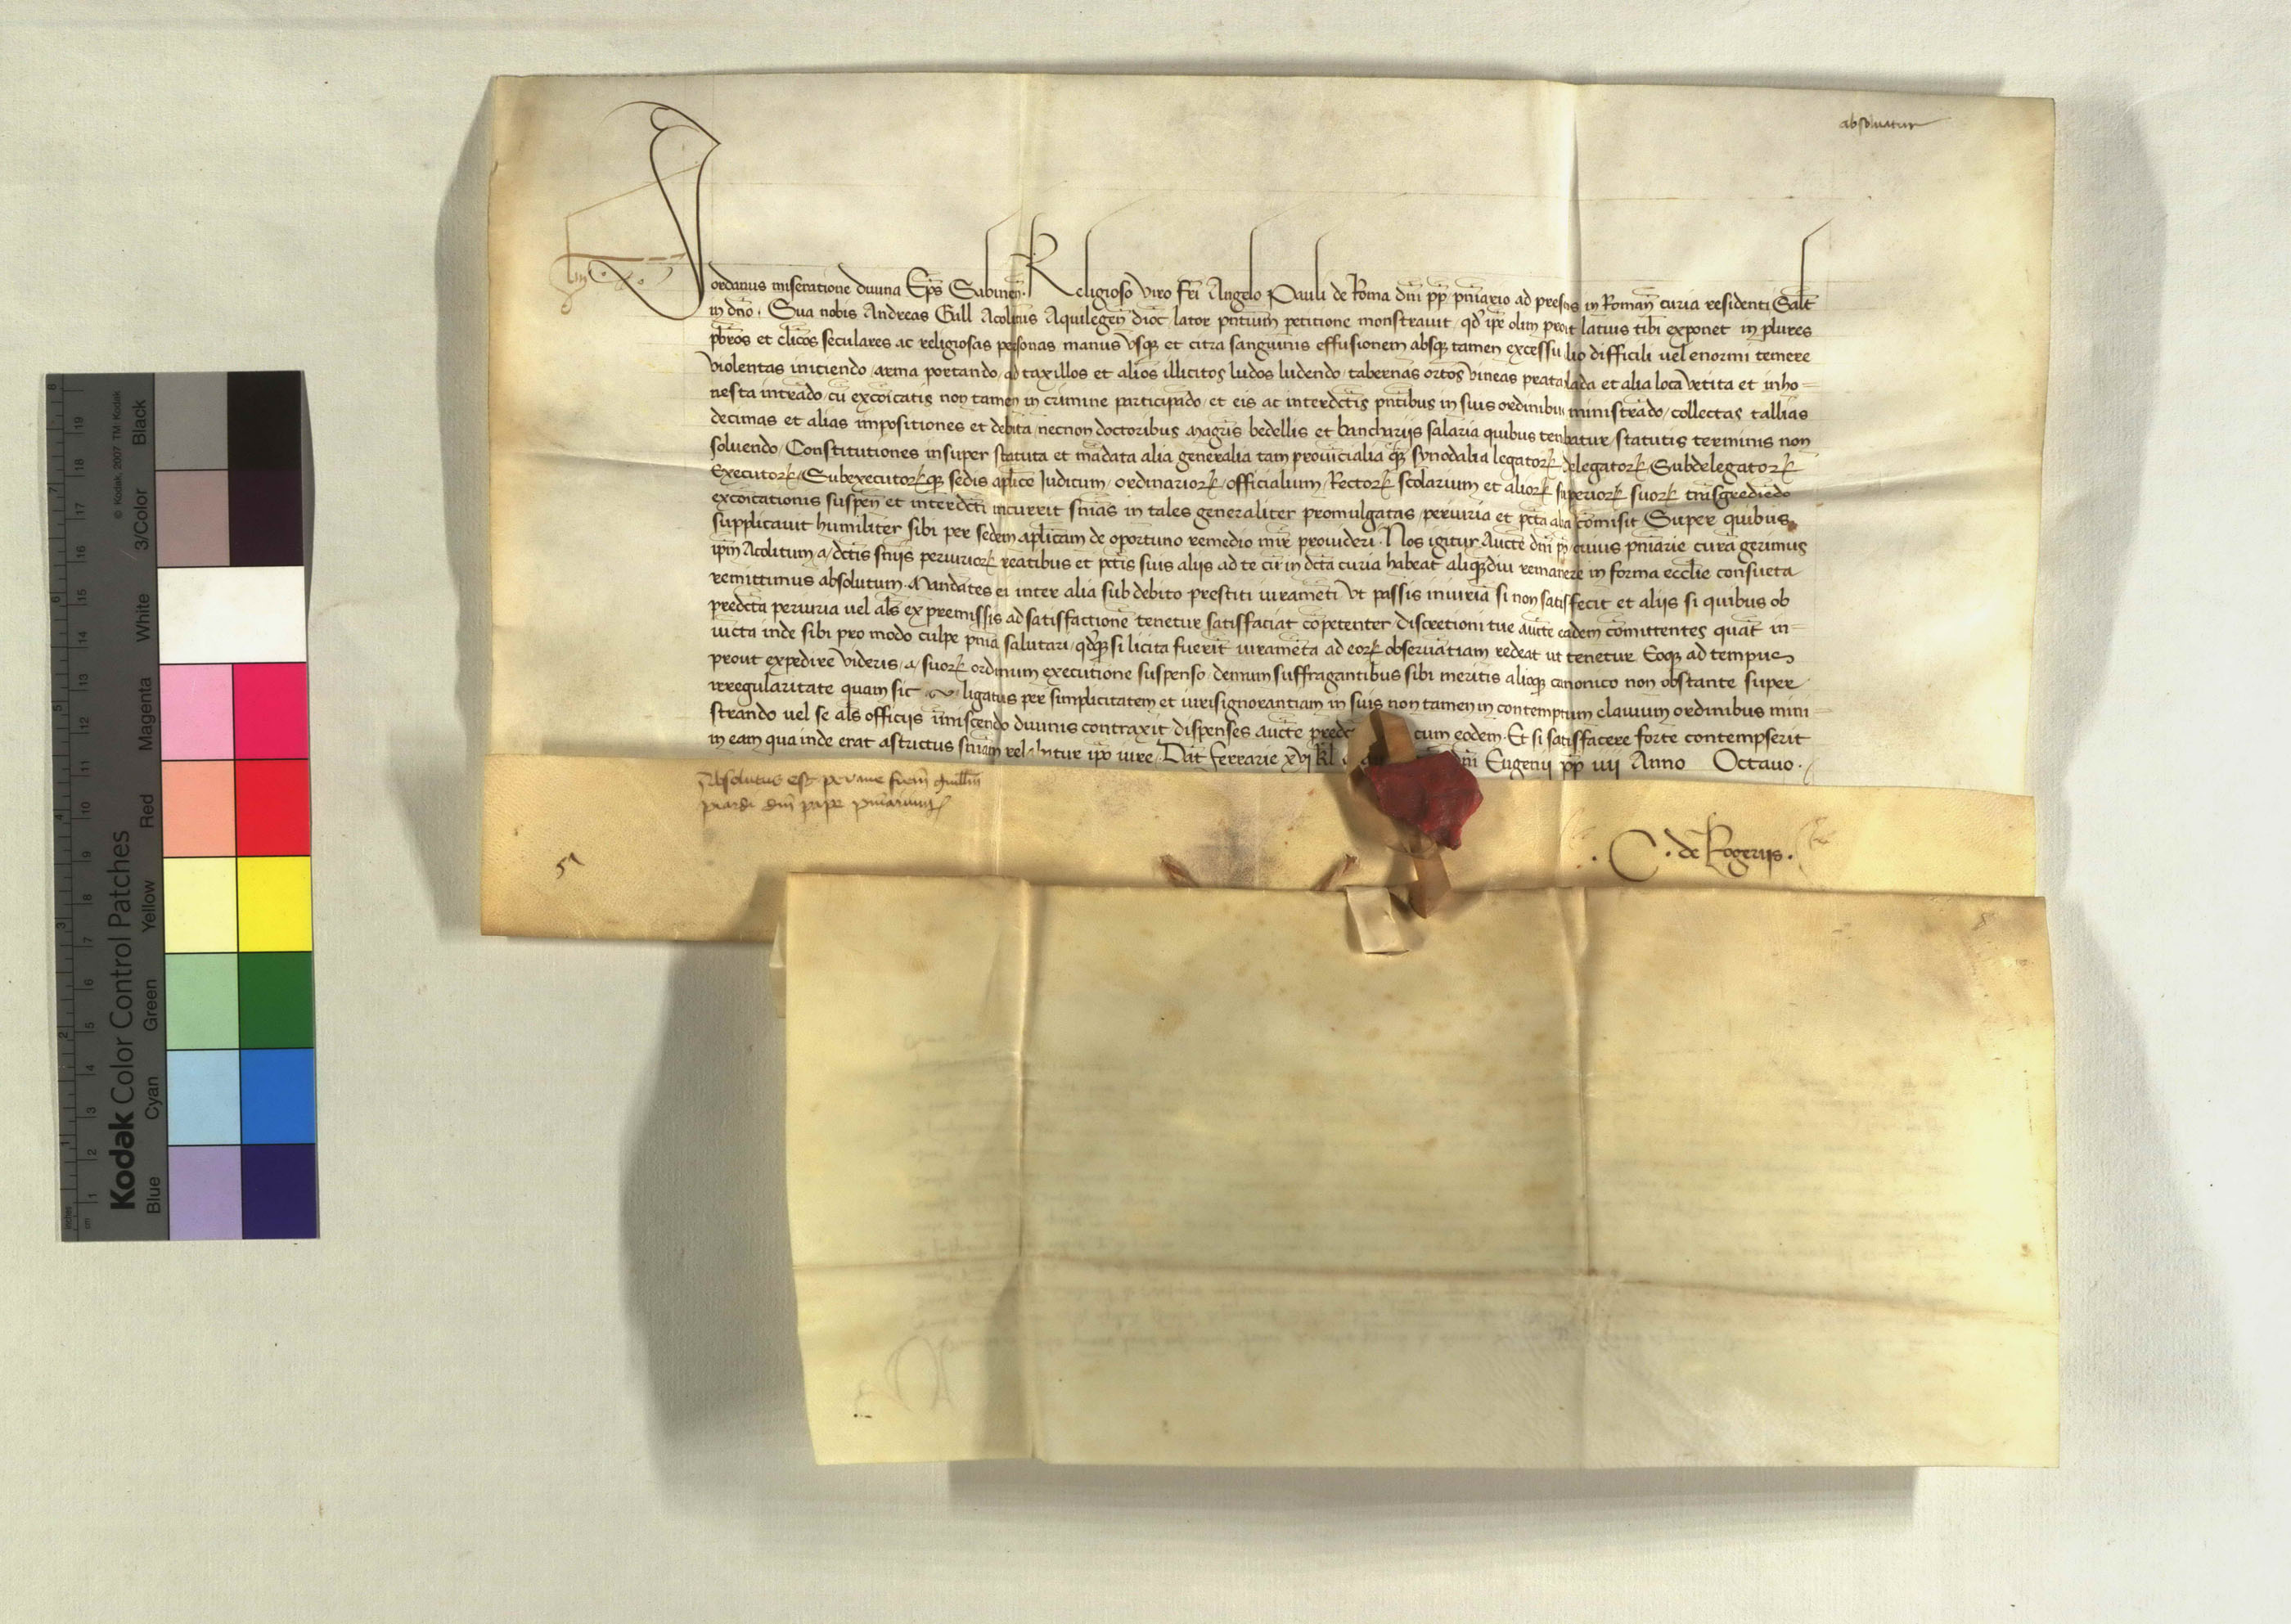 absoluatur
Jordanus miseratione diuina Ep̄s Sabineñ. Religioso viro fr̄i Angelo Pauli de Roma dn̄i pp̄ pn̄iario ad presens in Romañ curia residenti Salt̄
in dn̄o. Sua nobis Andreas Gill Acolitus Aquilegeñ dioc̄ lator pn̄tium petitione monstrauit, qd̄ ip̄e olim prout latius tibi exponet in plures
pb̄ros et cl̄icos seculares ac religiosas personas manus vsq̨ et citra sanguinis effusionem absq̨ tamen excessu alio difficili uel enormi temere
violentas iniciendo, arma portando, ad taxillos et alios illicitos ludos ludendo, tabernas ortos vineas prata blada et alia loca vetita et inho=
nesta intrādo, cū excōicatis non tamen in crimine participādo, et eis ac interdc̄tis pn̄tibus in suis ordinibus ministrādo, collectas tallias
decimas et alias impositiones et debita, necnon doctoribus magr̄is bedellis et banchariis salaria quibus tenebatur, statutis terminis non
soluendo, Constitutiones insuper statuta et mādata alia generalia tam prouīcialia q̄ꝫ synodalia legatorꝝ delegatorꝝ Subdelegatorꝝ
Executorꝝ, Subexecutorꝝq̨ sedis apl̄ice Judicum, ordinariorꝝ, officialium, Rectorꝝ scolarium et aliorꝝ superiorꝝ suorꝝ trāsgrediēdo
excōicationis suspeñ et interdc̄ti incurrit sn̄ias in tales generaliter promulgatas, periuria et pctā alia cōmisit Super quibus
supplicauit humiliter sibi per sedem apl̄icam de oportuno remedio mīr prouideri. Nos igitur Auctē dn̄i pp̄ cuius pn̄iarie curā gerimus
ip̄m Acolitum a, dc̄tis sn̄iis periuriorꝝ reatibus et pctīs suis aliis ad te cū in dc̄ta curia habeat aliqꝫdiu remanere in forma eccl̄ie consueta
remittimus absolutum. Mandātes ei inter alia sub debito prestiti iuramēti vt passis iniuriā si non satisfecit et aliis si quibus ob
predc̄ta periuria uel al̄s ex premissis ad satisfactionē tenetur satisfaciat cōpetenter discretioni tue auctē eadem cōmittentes quat̄ in=
iucta inde sibi pro modo culpe pn̄ia salutari, qd̄q̨ si licita fuerīt iuramēta ad eorꝝ obseruātiam redeat ut tenetur Eoq̨ ad tempus
prout expedire videris, a, suorꝝ ordinum executione suspenso, demum suffragantibus sibi meritis alioq̨ canonico non obstante super
irregularitate quam sic ligatus per simplicitatem et iurisignorantiam in suis non tamen in contemptum clauium ordinibus mini=
strando uel se al̄s officiis īmiscendo diuinis contraxit dispenses auctē cum eodem. Et si satisfacere forte contempserit
in eam qua inde erat astrictus sn̄iam relabatur ip̄o iure. Dat̄ Ferrarie xvj kl̄ dn̄i Eugenii pp̄ iiii Anno Octauo.
Absolutus est per me frēm guill̄m
dn̄i pape pn̄iarium
C. de Rogeriis.
© Kodak, 2007 TM Kodak
Kodak Color Control Patches
Blue Cyan Green Yellow Red Magenta White 3/Color Black
inches 1 2 3 4 5 6 7 8
cm 1 2 3 4 5 6 7 8 9 10 11 12 13 14 15 16 17 18 19